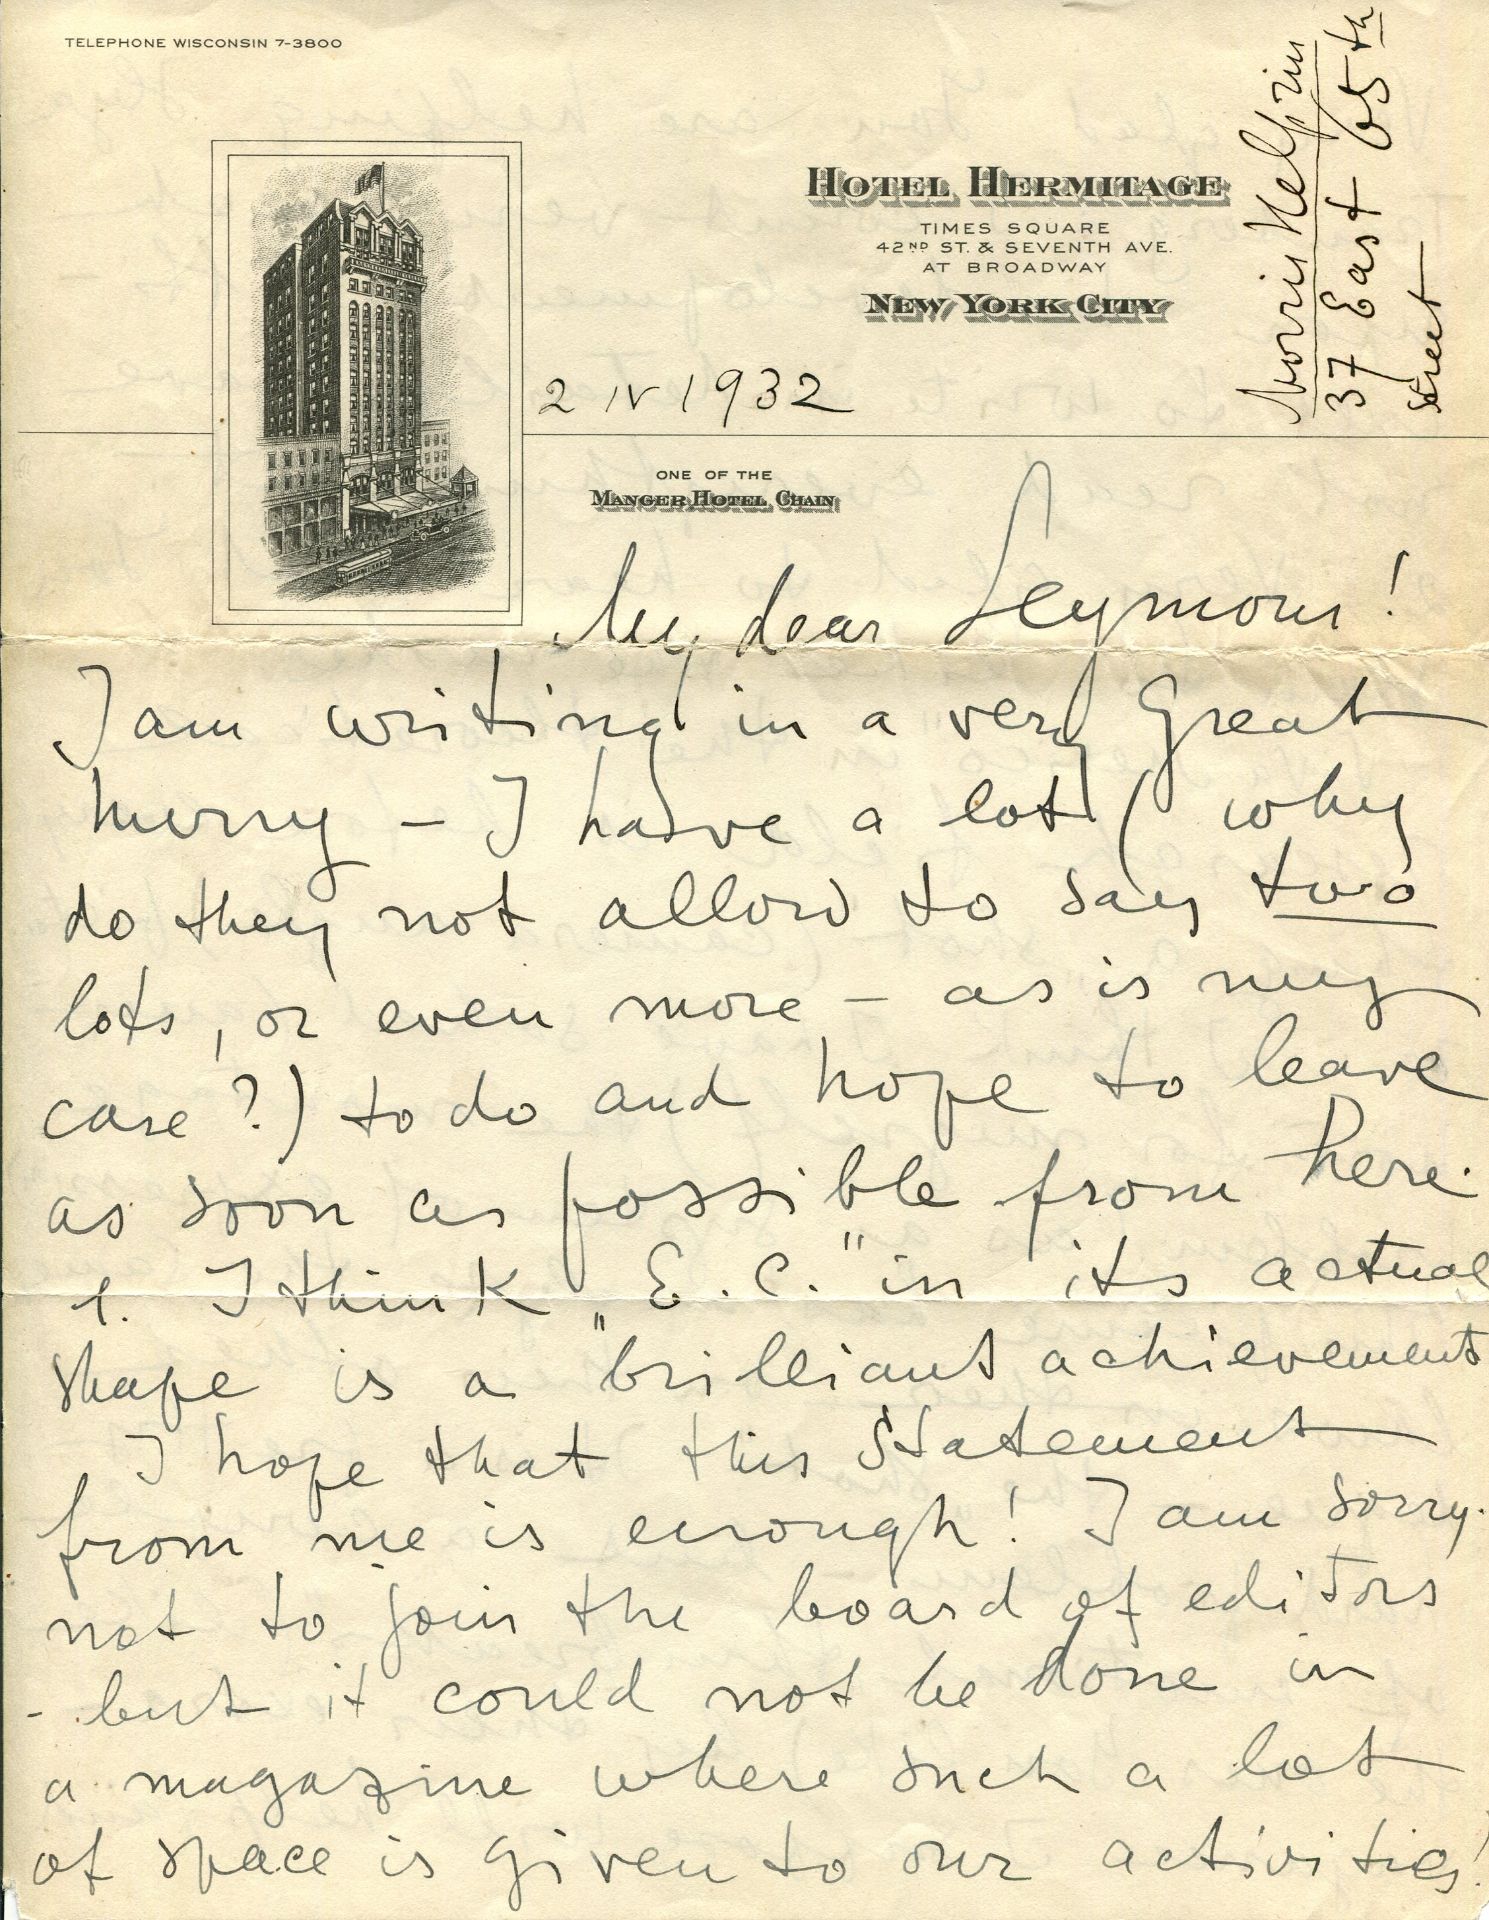 TELEPHONE WISCONSIN 7-3800
HOTEL HERMITAGE
TIMES SQUARE
42ND ST. & SEVENTH AVE.
AT BROADWAY
NEW YORK CITY
Morris Helprin
37 East 65th
street
2 IV 1932
ONE OF THE
MANGER HOTEL CHAIN
My dear Seymour!
I am writing in a very great
hurry – I have a lot (why
do they not allow to say two
lots, or even more – as is my
case?) to do and hope to leave
as soon as possible from here.
1. I think „E. C." in its actual
shape is a "brilliant achievement
I hope that this statement
from me is enough! I am sorry
not to join the board of editors
- but it could not be done in
a magazine where such a lot
of space is given to our activities!